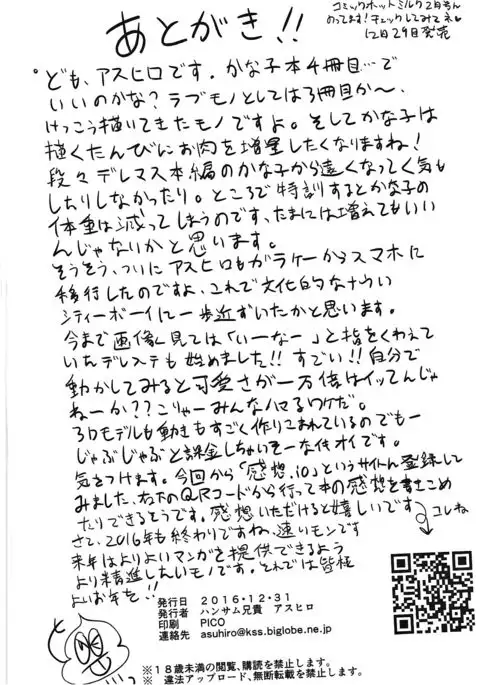 コミックホットミルク2月号さん
のってます！チェックしてみてネ♥
12月29日発売
あとがき!!
ども、アスヒロです。かな子本4冊目…で
いいのかな？ラブモノとしては3冊目か〜、
けっこう描いてきたモノですよ。そしてかな子は
描くたんびにお肉を増量したくなりますね！
段々デレマス本編のかな子から遠くなってく気も
したりしなかったり。ところで特訓するとかな子の
体重は減ってしまうのです、たまには増えてもいい
んじゃなりかと思います。
そうそう、ついにアスヒロもガラケーからスマホに
移行したのですよ、これで文化的なナウい
シティーボーイに一歩近ずいたかと思います。
今まで画像見ては「いーなー」と指をくわえて
いたデレステも始めました!!すごい!!自分で
動かしてみると可愛さが一万倍はイッてんじゃ
ねーか??こりゃーみんなハマるワケだ。
3Dモデルも動きもすごく作りこまれているのでもー
じゃぶじゃぶと課金しちゃいそーな仕オイです。
気をつけます。今回から「感想.io」というサイトへ登録して
みました、右下のQRコードから行って本の感想を書きこめ
たりできるそうです。感想いただけると嬉しいです
コレね
さて、2016年も終わりですね、速いモンです
来年はよりよいマンガを提供できるよう
より精進したいモノです。それでは皆様
よいお年を!!
発行日 2016・12・31
発行者 ハンサム兄貴 アスヒロ
印刷 PICO
連絡先 asuhiro@kss.biglobe.ne.jp
※18歳未満の閲覧、購読を禁止します。
※ 違法アップロード、無断転載を禁止します。